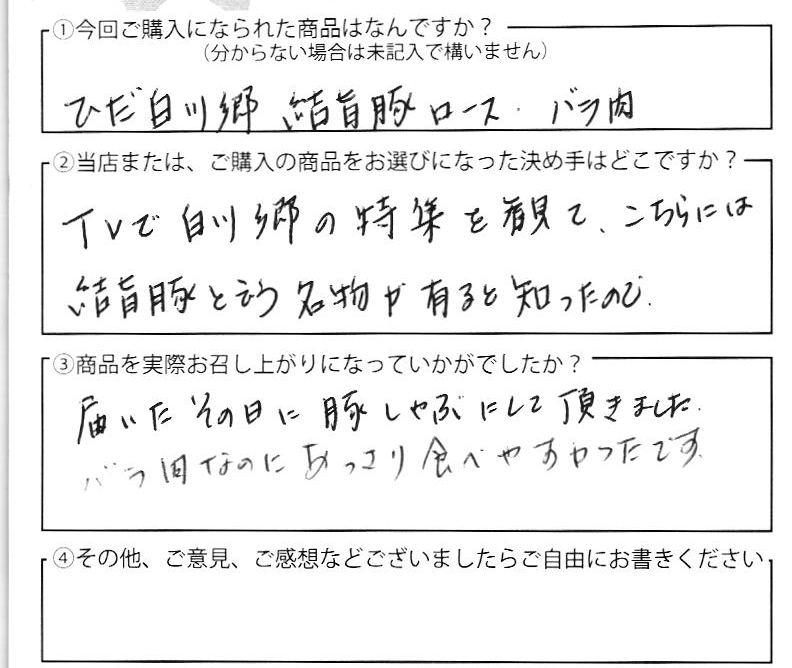 ①今回ご購入になられた商品はなんですか？
（分からない場合は未記入で構いません）
ひだ白川郷 結旨豚 ロース. バラ肉
②当店または、ご購入の商品をお選びになった決め手はどこですか？
TVで白川郷の特集を観て、こちらには
結旨豚と云う名物が有ると知ったので.
③商品を実際お召し上がりになっていかがでしたか？
届いたその日に豚しゃぶにして頂きました.
バラ肉なのにあっさり食べやすかったです.
④その他、ご意見、ご感想などございましたらご自由にお書きください